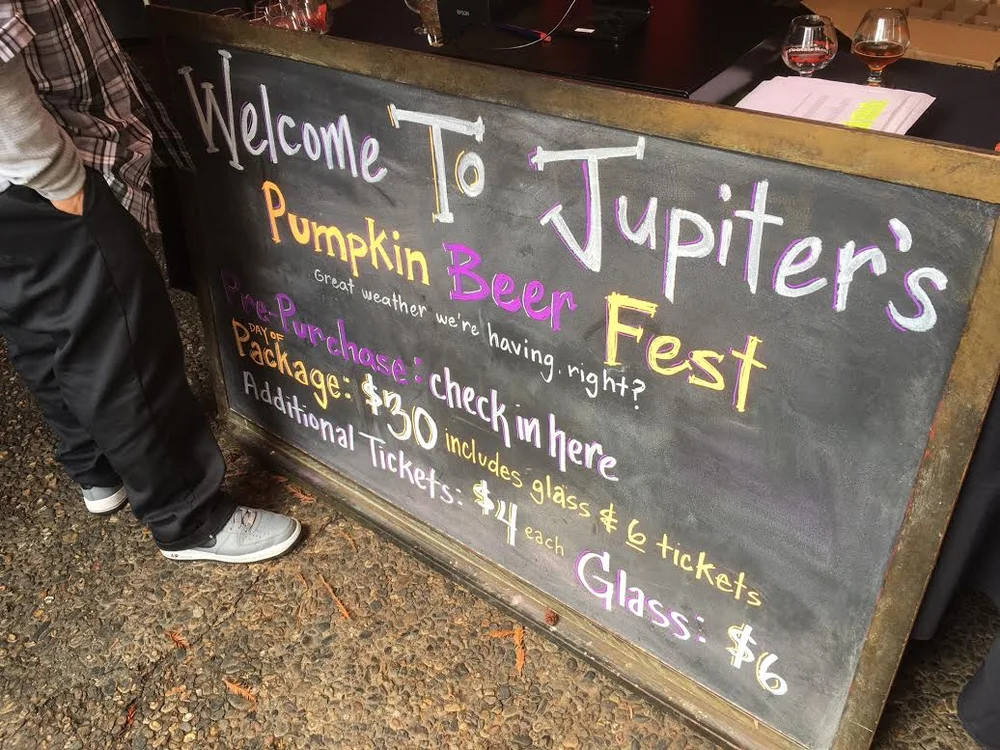 Welcome To Jupiter's
Pumpkin Beer Fest
Great weather we're having, right?
Pre-Purchase: check in here
DAY OF
Package: $30 includes glass & 6 tickets
Additional Tickets: $4 each
Glass: $6
EPSON